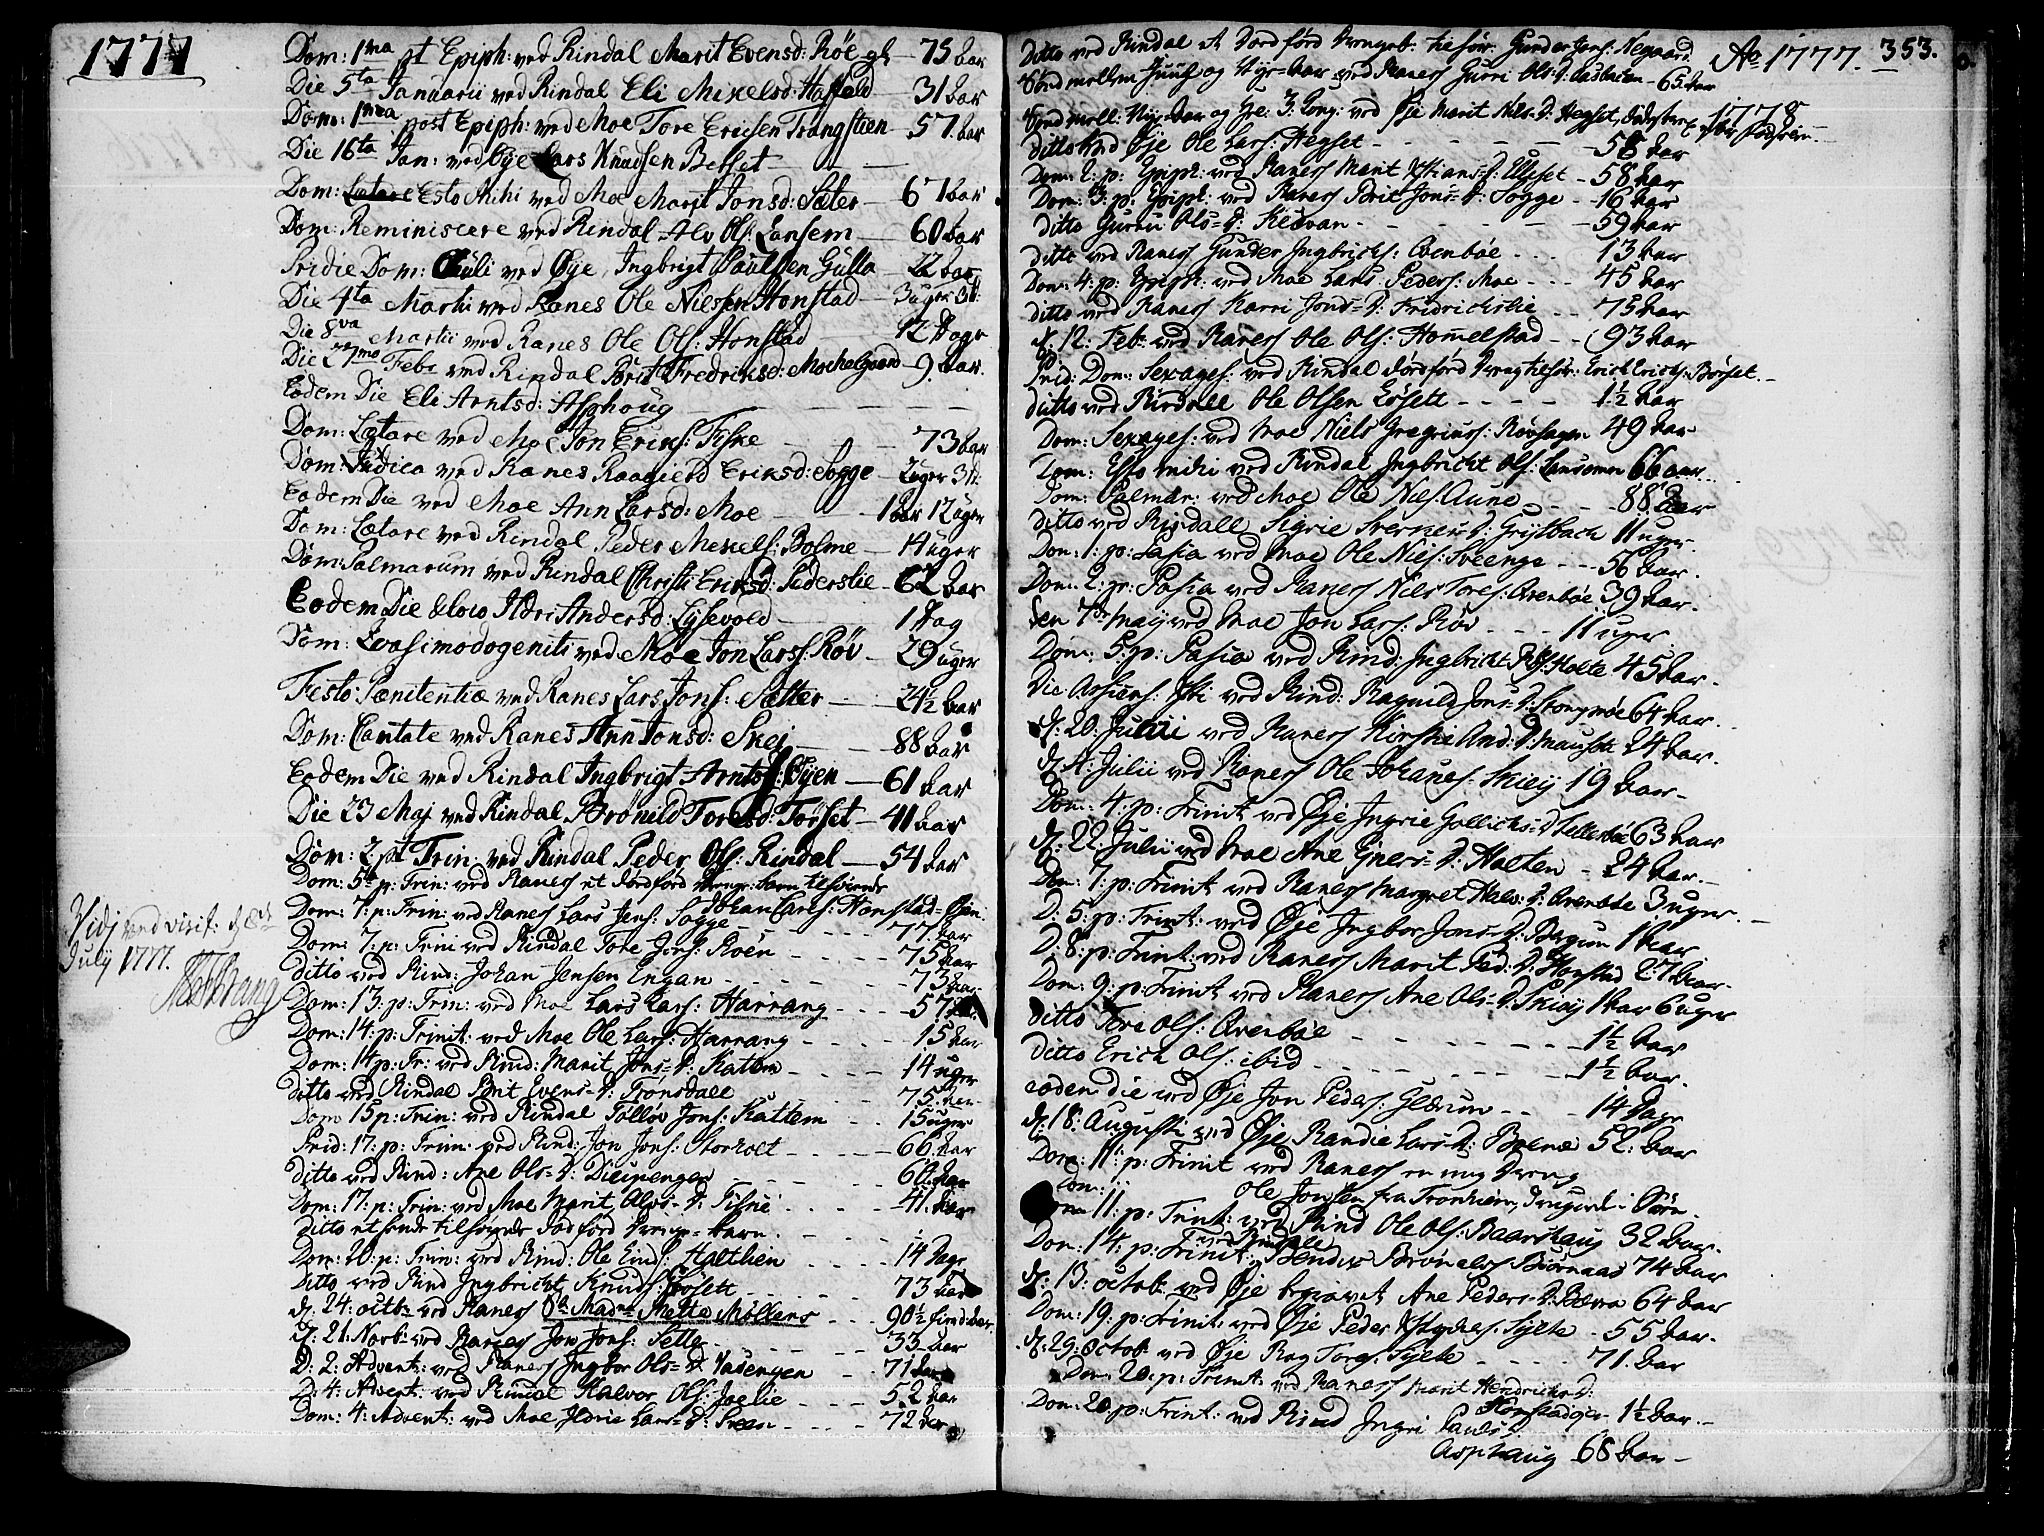 1777
Dom: 1ma pt Epiph: ved Rindal Marit Evensd: Röe gl — 75 aar
Die 5ta Januarii ved Rindal Eli Mikelsd: — 31 aar
Dom: 1ma post Epiph: ved Moe Tore Ericsen Trangstien — 57. aar
Die 16ta Jan: ved Øye Lars Knudsen Besset — —
Dom: Esto Mihi ved Moe Marit Jonsd: Sæter — 67 aar
Dom: Reminiscere ved Rindal Alv Ols: Lansem — 60 aar
Pridie Dom: Oculi ved Øye, Ingbrigt Paulsen Gulla — 22 aar
Die 4ta Martii ved Ranes Ole Nielsen Honstad — 3 uger 3d:
Die 8va Martii ved Ranes Ole Ols: Honstad — 12 Dage
Die 27ma Febr ved Rindal Børit Fredriksd: Mochelgaard — 9. aar.
Eodem Die Eli Arntsd: Asphoug — — —
Dom: Lætare ved Moe Jon Eriks: Fiske — 73 aar
Dom: Judica ved Ranes Raagierd Eriksd: Sogge — 2 uger 3d:
Eodem Die ved Moe Ann Larsd: Moe — 1 aar 12 uger
Dom: Lætare ved Rindal Peder Mekels: Bolme — 14 uger
Dom: Palmarum ved Rindal Christi Eriksd: Pederslie — 62 aar
Eodem Die & loco Ildri Andersd: Lysevold — 1 Dag
Dom: Qvasimodogeniti ved Moe Jon Larss: Röv — 29 uger
Festo: Pænitentiæ ved Ranes Lars Jons: Sætter — 24½ aar
Dom: Cantate ved Ranes Ann Jonsd: Skei — 88 aar
Eodem Die ved Rindal Ingbrigt Arnts: Øyen — 61 aar
Die 23 Maj ved Rindal Brönild Toresd: Törset — 41 aar
Dom: 2 pt Trin. ved Rindal Peder Ols: Rindal — 54 aar
Dom: 5te p: Trin: ved Ranes et dödföd Drenge: barn tilhörende
Johan Carls: Honstad- Øien.
Dom: 7: p: Trin: ved Ranes Lars Jens: Sogge — 77. aar
Dom: 7: p: Trin: ved Rindal Tore Jons: Röen — 75 aar
Ditto ved Rind: Johan Jensen Engan — 73 aar
Vidj ved visit: d: 8de
July 1777.
Dom: 13: p: Trin: ved Moe Lars Lars: Harrang — 57
Dom: 14: p: Trinit: ved Moe Ole Lars: Harrang — 15 aar
Dom: 14 p: Tr: ved Rind: Marit Jons-D: Kattem — 14 uger
ditto ved Rindal Børit Evens-D: Tronsdall — 75 aar
Dom 15 p: Trin: ved Rindal Tollöv Jons: Kattem — 15 uger
Prid: 17: p: Trin: ved Rind: Jon Jons: Storholt — 66. aar
ditto ved Rind: Ane Ols-D: — 60. aar
Dom: 17: p: Trin: ved Moe Marit Olss-D: Fiske — 41. aar
Dom: 20: p: Trin: ved Rind: Ole Eind: Halthien — 14 Dage
Ditto ved Rind Ingbricht Knuds: Løsett — 73 aar
d: 24: octb: ved Ranes Sl. Madme Mette Mollers — 90½ aar
d: 21: Novb: ved Ranes Jon Jons: Sette — 33 aar
D: 2: Advent: ved Ranes Ingbor Ols-D: Vasengen — 71 aar
D: 4: Advent: ved Rindal Halvor Ols: Joelie — 52 aar
Dom: 4: Advent: ved Moe Ildrie Lars-D: Sveen — 72 aar
Ao 1777. 353.
Ditto ved Rindal et Dödföd Drengeb: tilhør: Gunder Jons: Negaard
Sønd mellem Juul og Nyt-Aar ved Ranes Gurri Ols-D: — 65. aar
1778
Sønd mell: Nyt-Aar og He: 3: Kong: ved Øje Marit Nils-D: Hegset,
Ditto ved Øje Ole Lars: Hegset — 58 aar
Dom: 2: p: Epiph: ved Ranes Marit Christians-D: Ulset — 58 aar
Dom: 3: p: Epiph: ved Ranes Børit Jons-D: Sogge — 16 aar
Ditto Gurru Ols-D: Kleevan — 59 aar
ditto ved Ranes Gunder Ingbrichs: Qvenbøe — 13 aar
Dom: 4: p: Epiph: ved Moe Lars Peders: Moe — 45 aar
ditto ved Ranes Karri Jons-D: Fridrichslie — 75 aar
d: 12: Feb: ved Ranes Ole Ols: Hommelstad — 93 aar
Prid: Dom: Sexages: ved Rindal dödföd Dreng tilhør: Erich Erichs: Børset. —
ditto ved Rindall Ole Olsen Løsett — 1½ aar
Dom: Sexages: ved Moe Niels Gregriuss: Røvhagen 49 aar
Dom: Esto mihi ved Rindal Ingbricht Ols: Lansemm 66 aar.
Dom: Palmar: ved Moe Ole Niels: Aune — 88 aar
ditto ved Rindall Sigrie Sverkes-D: Grytbach 11 uger.
Dom: 1: p: Pasca ved Moe Ole Niels: Sveenge — 56 aar.
Dom: 2: p: Pasca ved Ranes Niels Tores: Qvenbøe 39 aar.
den 7de Maij ved Moe Jon Lars: Röv — 11 uger
Dom: 5: p: Pasca ved Rind: Ingbricht Ols: Holte 45 aar.
Die Ascens: Xti ved Rind: Ragnild Jons-D: Stomprøe 64 aar.
d: 20: Junii ved Ranes Kirstie And:-D: Mauset 24 aar.
d: 4: Julii ved Ranes Ole Johanes: Skiej 19 aar.
Dom: 4: p: Trinit ved Øje Ingrie Gollichs-D: Settesbøe 63 aar
d: 22: Julii ved Moe Ane Einers-D: Holten — 24 aar.
Dom: 7: p: Trinit: ved Ranes Margret Hals:-D: Qvenbøe 3 uger.
D: 5: p: Trinit: ved Øje Ingbor Jons-D: Bagum 1 aar
D: 8: p: Trinit: ved Ranes Marit Ped:-D: Honstad 27. aar.
Dom: 9: p: Trinit: ved Ranes Ane Ols-D: Skiøj 1 aar 6 uger
ditto Tore Ols: Qvenbøe — 1½ aar
ditto Erich Ols: ibid — 1½ aar.
eodem die ved Øje Jon Peders: Glærum — 14 Dage
d: 18: Augusti ved Øje Randie Lars-D: Bolme 52: aar
Dom: 11: p: Trinit ved Ranes en ung Dreng
Ole Jonsen fra Trondhiem,
Dom: 11: p: Trinit: ved Rind Ole Ols: Baarshaug 32 aar.
Dom: 14: p: Trinit: ved Rindall Bendix Brønels: Biørnaas 74 aar
d: 13: octob: ved Øje begravet Ane Peders-D: Bævra 64 aar
Dom: 19: p: Trinit: ved Øje Peder Sylte — 55 aar.
d: 29: Octob ved Øje Rag Tores: Sylte — 71. aar
Dom: 20: p: Trinit: ved Ranes Marit Hendrichs-D:
Honstadgie — 1½ aar.
Dom: 20. p: Trinit: ved Rind Ingri Pauls-D:
Asphaug 68 aar —